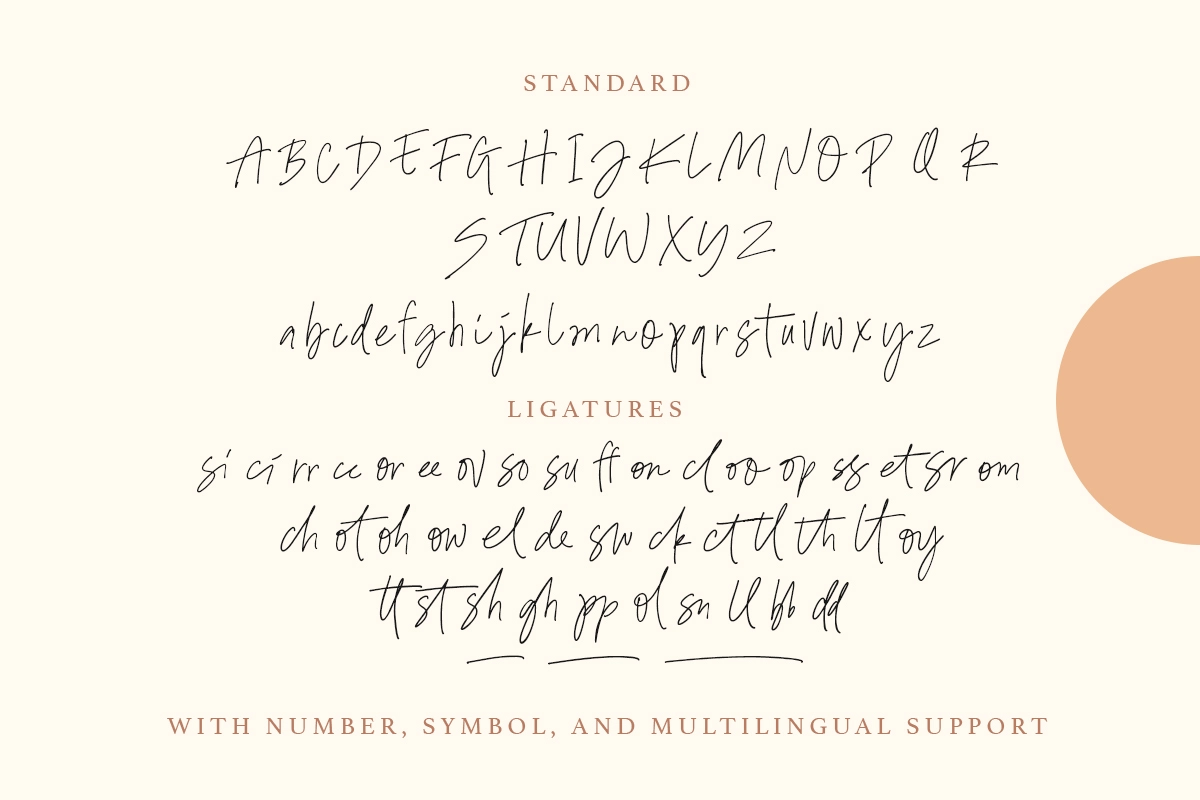 STANDARD
A B C D E F G H I J K L M N O P Q R
S T U V W X Y Z
a b c d e f g h i j k l m n o p q r s t u v w x y z
LIGATURES
si ci rr cc or ee ov so su ff on cl oo op ss et sr om
ch ot oh ow el de sw ck ct tl th lt oy
tt st sh gh pp ol sn ll bb dd
WITH NUMBER, SYMBOL, AND MULTILINGUAL SUPPORT